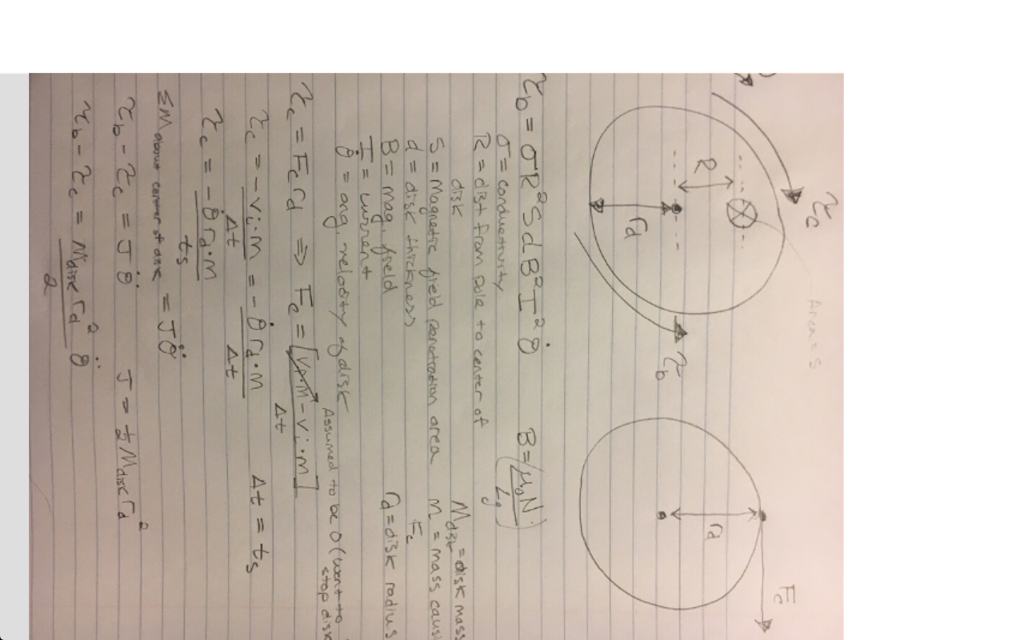 τc
Area = S
R
rd
τb
rd
Fc
τb = σR²SdB²I²θ̇
B = (μ₀N / Lg)
σ = conductivity
R = dist from pole to center of
disk
S = Magnetic field penetration area
d = disk thickness
B = mag. field
I = current
θ̇ = ang. velocity of disk
Mdisk = disk mass
m = mass
Fc
rd = disk radius
τc = Fc rd ⇒ Fc = [vf·m - vi·m] / Δt
Assumed to be 0 (want to
stop disk
τc = -vi·m / Δt = -θ̇rd·m / Δt
Δt = ts
τc = -θ̇rd·m / ts
ΣM about center of disk = Jθ̈
τb - τc = Jθ̈
J = ½ Mdisk rd²
τb - τc = Mdisk rd² / 2 θ̈